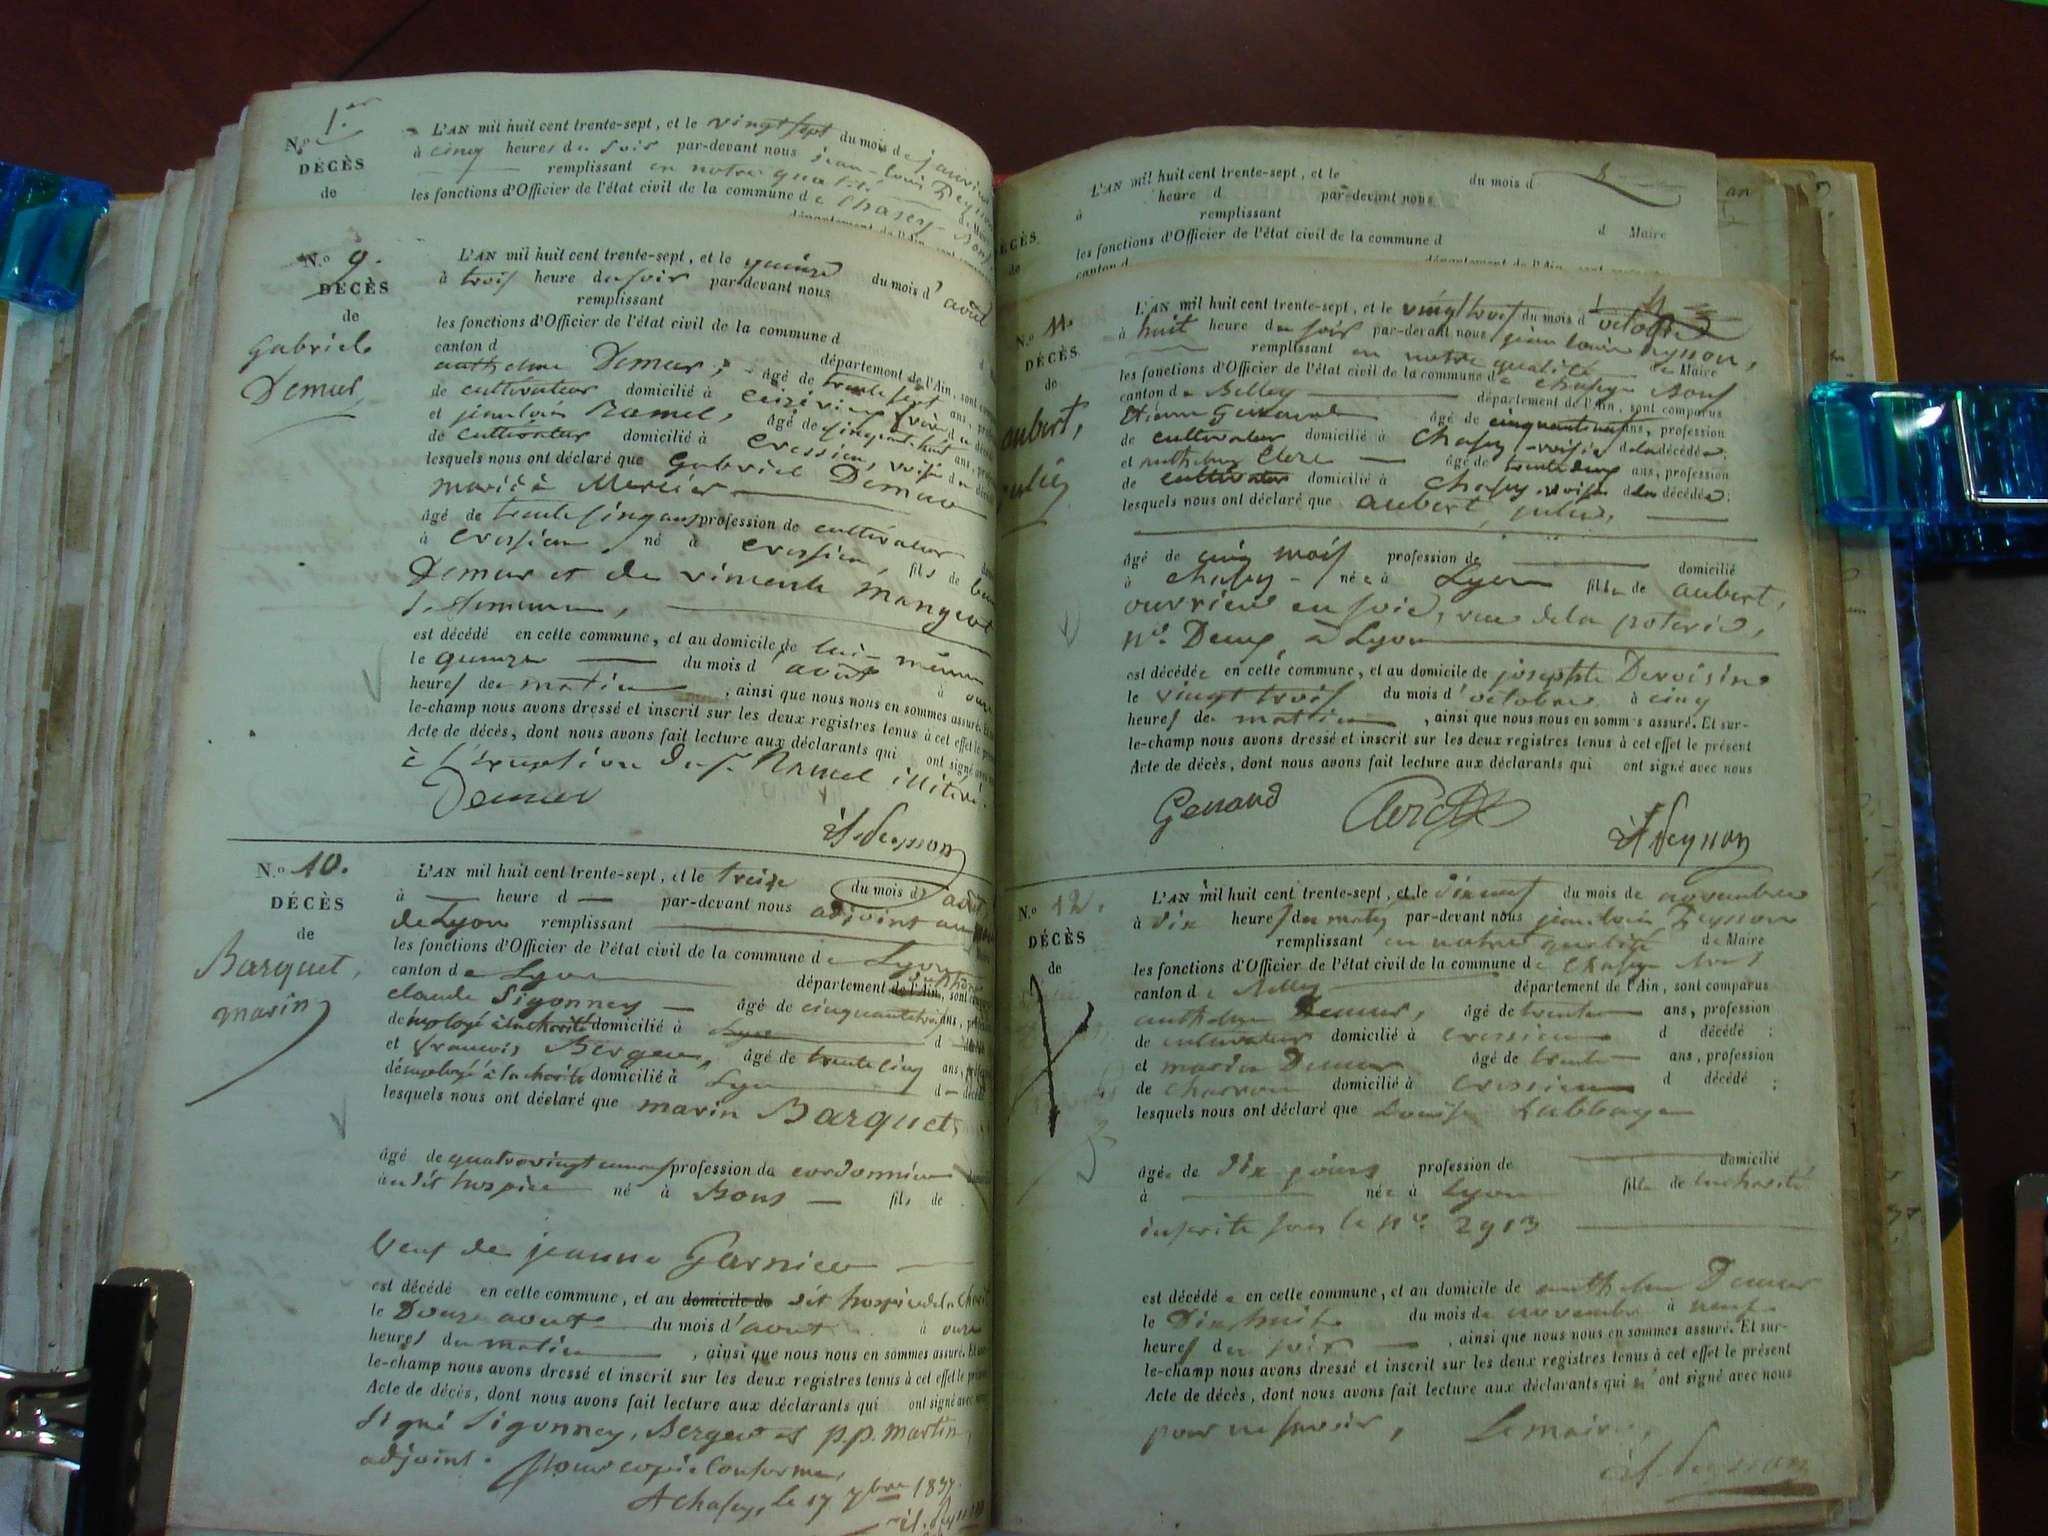 N.o 1.er
DÉCÈS
de
L'AN mil huit cent trente-sept, et le vingt sept du mois de janvier
à cinq heures du soir par-devant nous jean-louis Peysson
remplissant en notre qualité
les fonctions d'Officier de l'état civil de la commune de Chasey-Bons
N.o 9.
DÉCÈS
de
Gabriel
Demur
L'AN mil huit cent trente-sept, et le quinze du mois d'août
à trois heure du soir par-devant nous
remplissant
les fonctions d'Officier de l'état civil de la commune d
canton d département de l'Ain, sont
anthelme Demur, âgé de trente sept ans,
de cultivateur domicilié à
et jean louis Ramel, âgé de cinquante huit ans,
de cultivateur domicilié à Cressieu, voisin du
lesquels nous ont déclaré que Gabriel Demur
marié à Mercier
âgé de trente cinq ans profession de cultivateur
à Cressieu, né à Cressieu, fils de
Demur et de vincente mangeot
est décédé en cette commune, et au domicile de lui-même
le quinze du mois d'août à onze
heures de matin, ainsi que nous nous en sommes assuré. Et
le-champ nous avons dressé et inscrit sur les deux registres tenus à cet effet le
Acte de décès, dont nous avons fait lecture aux déclarants qui ont signé
à l'exception du s.r Ramel illitéré.
Demur
N.o 10.
DÉCÈS
de
Barquet,
marin
L'AN mil huit cent trente-sept, et le treize du mois d'août
à heure d par-devant nous adjoint au
de Lyon remplissant
les fonctions d'Officier de l'état civil de la commune de Lyon
canton de Lyon département de l'Ain, sont
claude Sigonney âgé de cinquante trois ans,
de employé à la charité domicilié à Lyon d
et francois Bergeu, âgé de trente cinq ans,
d'employé à la charité domicilié à Lyon d
lesquels nous ont déclaré que marin Barquet,
âgé de quatrevingt un ans profession de cordonnier
au dit hospice né à Bons fils de
Veuf de jeanne Garnier
est décédé en cette commune, et au domicile de dit hospice de la
le Douze aout du mois d'aout à onze
heures du matin, ainsi que nous nous en sommes assuré. Et
le-champ nous avons dressé et inscrit sur les deux registres tenus à cet effet le
Acte de décès, dont nous avons fait lecture aux déclarants qui ont signé avec
Signé Sigonney, Bergeu et p.p. martin,
adjoint. Pour copie Conforme,
A Chasey, le 17 7bre 1837.
DÉCÈS
de
L'AN mil huit cent trente-sept, et le du mois d
à heure d par-devant nous
remplissant d Maire
les fonctions d'Officier de l'état civil de la commune d
canton d
N.o 11.
DÉCÈS
de
aubert,
julie
L'AN mil huit cent trente-sept, et le vingt trois du mois d'octobre
à huit heure du soir par-devant nous jean louis Peysson,
remplissant en notre qualité de Maire
les fonctions d'Officier de l'état civil de la commune de Chasey Bons
canton de Belley département de l'Ain, sont comparus
Etienne Genand âgé de cinquante neuf ans, profession
de cultivateur domicilié à Chasey, voisin de la décédée;
et anthelme Clerc âgé de trente deux ans, profession
de cultivateur domicilié à Chasey, voisin de la décédée;
lesquels nous ont déclaré que aubert, julie,
âgé de cinq mois profession de domicilié
à Chasey née à Lyon fille de aubert,
ouvrier en soie, rue de la poterie,
n.o Deux, à Lyon
est décédée en cette commune, et au domicile de josephte Devoisin
le vingt trois du mois d'octobre à cinq
heures de matin, ainsi que nous nous en sommes assuré. Et sur-
le-champ nous avons dressé et inscrit sur les deux registres tenus à cet effet le présent
Acte de décès, dont nous avons fait lecture aux déclarants qui ont signé avec nous
Genand Clerc
N.o 12.
DÉCÈS
de
L'AN mil huit cent trente-sept, et le Dix neuf du mois de novembre
à dix heures du matin par-devant nous jean louis Peysson
remplissant en notre qualité de Maire
les fonctions d'Officier de l'état civil de la commune de Chasey Bons
canton de Belley département de l'Ain, sont comparus
anthelme Demur, âgé de trente ans, profession
de cultivateur domicilié à Cressieu d décédé;
et marin Demur âgé de trente ans, profession
de charron domicilié à Cressieu d décédé;
lesquels nous ont déclaré que Louise Labbaye
âgée de dix jours profession de domicilié
à née à Lyon fille de la charité
inscrite sous le n.o 2913
est décédée en cette commune, et au domicile de anthelme Demur
le Dix huit du mois de novembre à neuf
heures du soir, ainsi que nous nous en sommes assuré. Et sur-
le-champ nous avons dressé et inscrit sur les deux registres tenus à cet effet le présent
Acte de décès, dont nous avons fait lecture aux déclarants qui ont signé avec nous
pour ne savoir, Le maire,